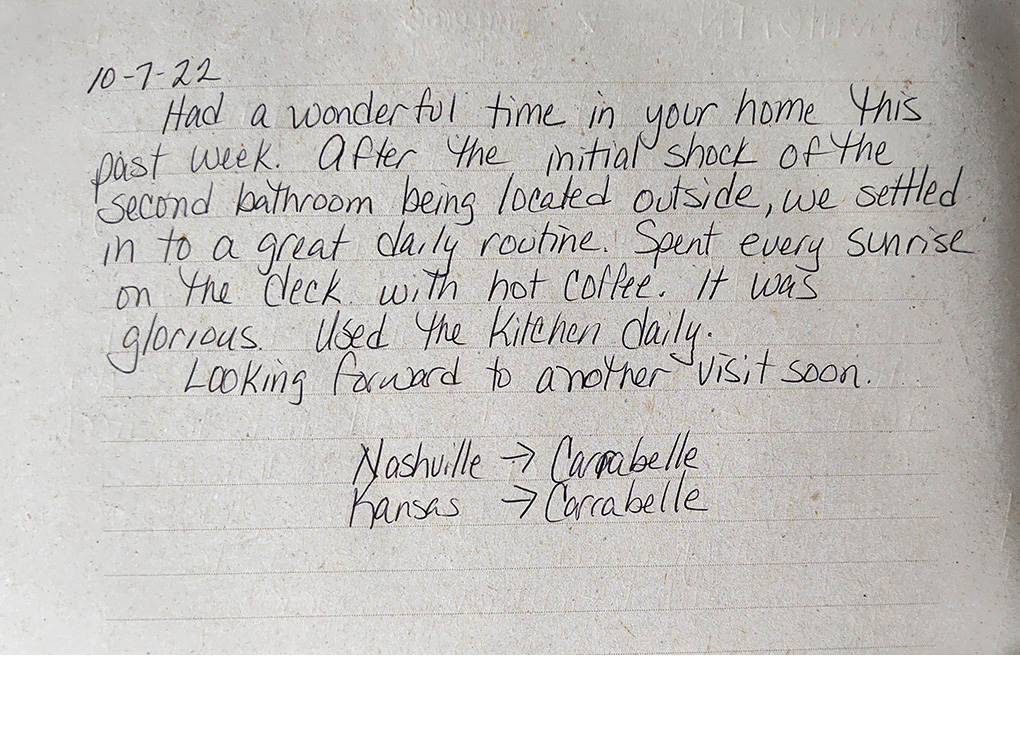 10-7-22
Had a wonderful time in your home this
past week. After the initial shock of the
second bathroom being located outside, we settled
in to a great daily routine. Spent every sunrise
on the deck with hot coffee. It was
glorious. Used the kitchen daily.
Looking forward to another visit soon.
Nashville → Carrabelle
Kansas → Carrabelle